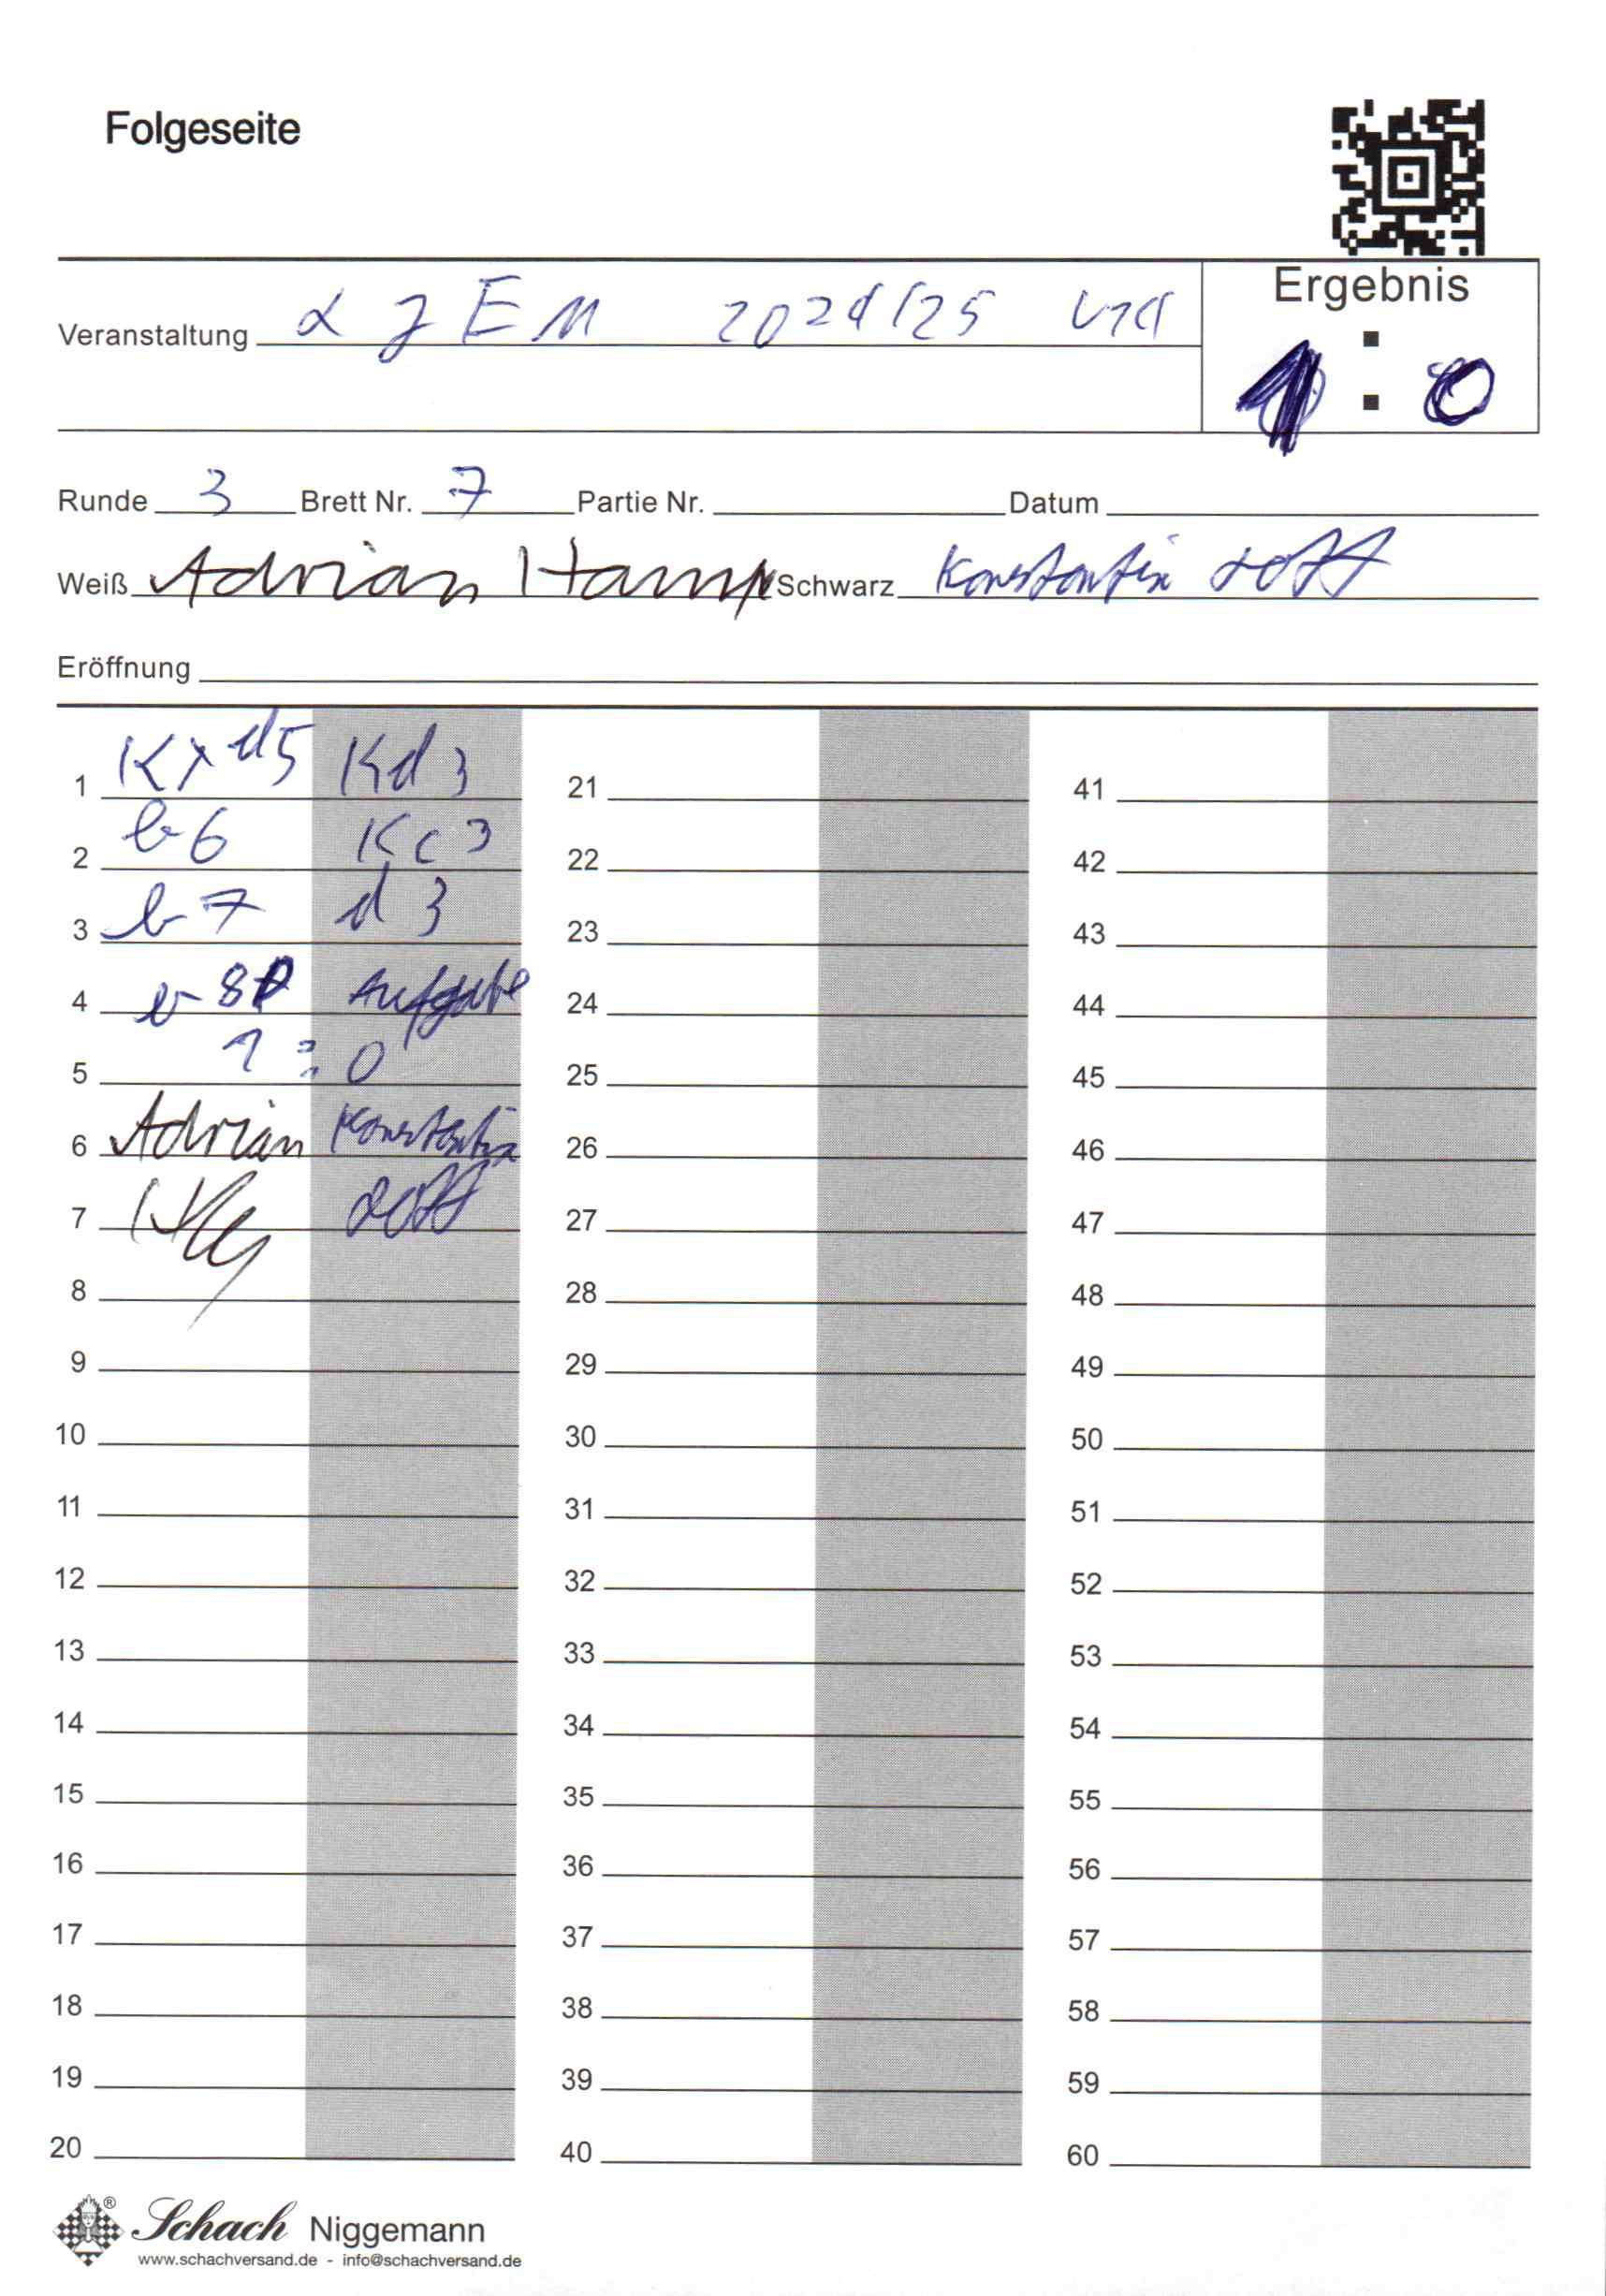 Folgeseite
Ergebnis
Veranstaltung LJEM 2024/25 U14
1 : 0
Runde 3 Brett Nr. 7 Partie Nr. Datum
Weiß Adrian Hamp Schwarz Konstantin
Eröffnung
1 Kxd5 Kd3 21 41
2 b6 Kc3 22 42
3 b7 d3 23 43
4 b8D Aufgabe 24 44
5 1 : 0 25 45
6 Adrian Konstantin 26 46
7 27 47
8 28 48
9 29 49
10 30 50
11 31 51
12 32 52
13 33 53
14 34 54
15 35 55
16 36 56
17 37 57
18 38 58
19 39 59
20 40 60
® Schach Niggemann
www.schachversand.de - info@schachversand.de